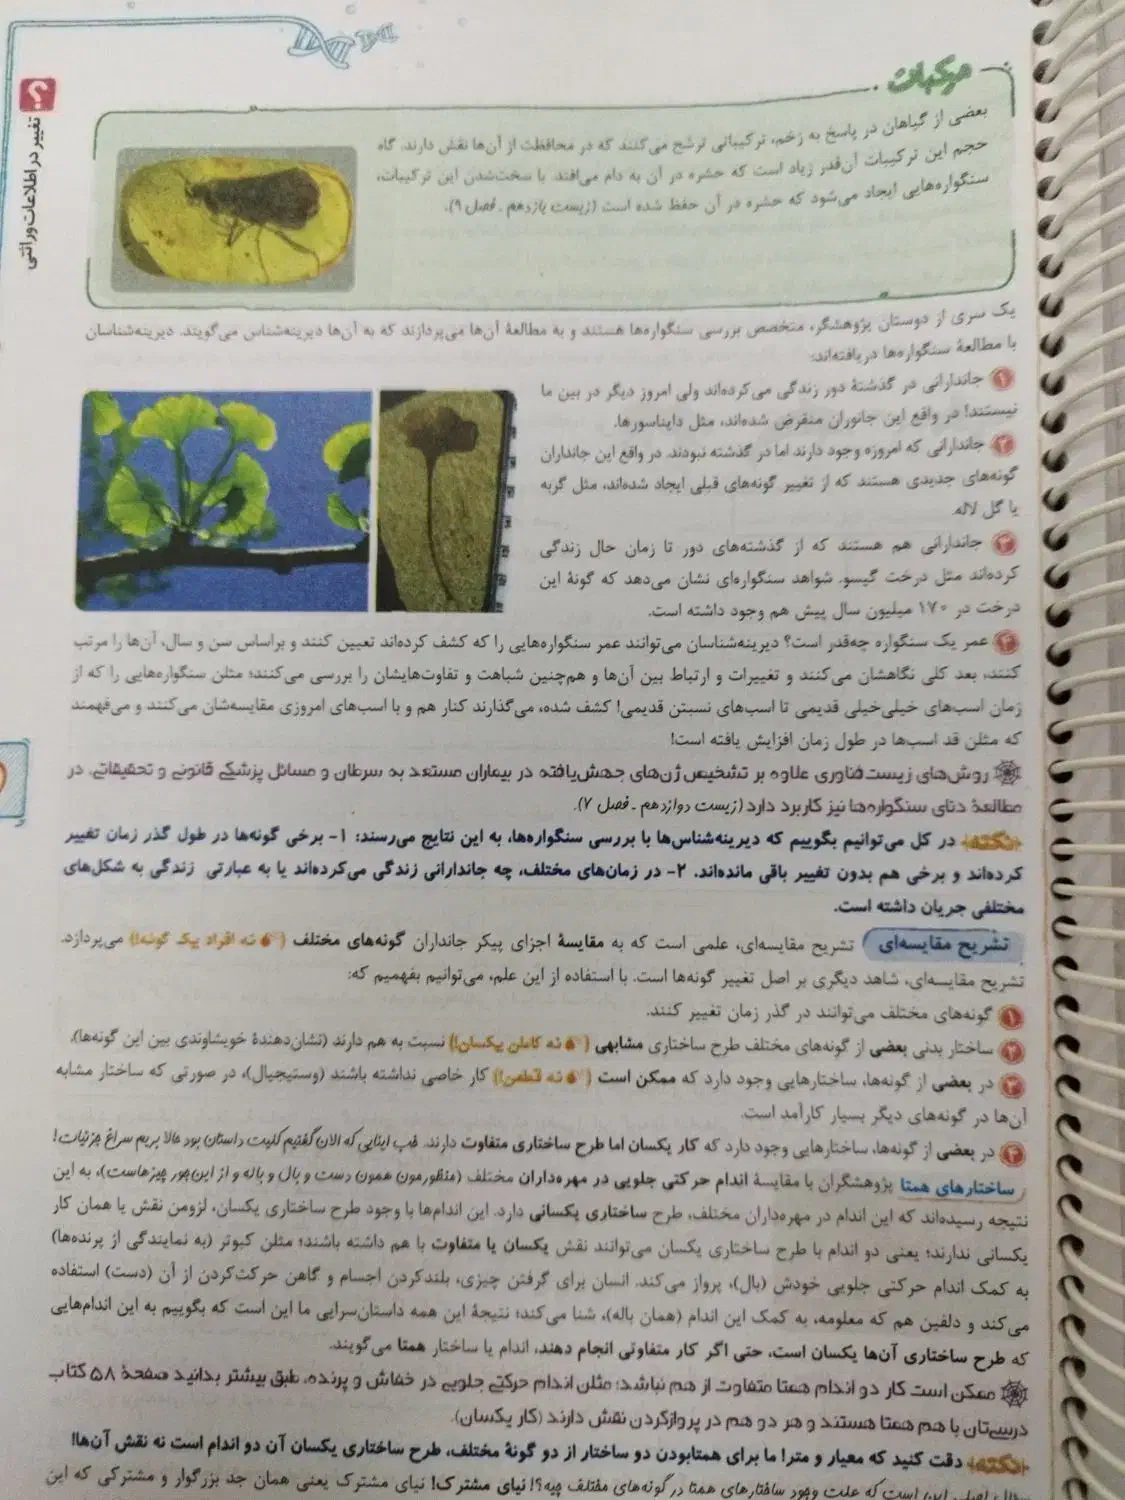 مرکبات
بعضی از گیاهان در پاسخ به زخم، ترکیباتی ترشح می‌کنند که در محافظت از آن‌ها نقش دارند. گاه
حجم این ترکیبات آن‌قدر زیاد است که حشره در آن به دام می‌افتد. با سخت‌شدن این ترکیبات،
سنگواره‌هایی ایجاد می‌شود که حشره در آن حفظ شده است (زیست یازدهم ـ فصل ۹).
؟ تغییر در اطلاعات وراثتی
یک سری از دوستان پژوهشگر، متخصص بررسی سنگواره‌ها هستند و به مطالعهٔ آن‌ها می‌پردازند که به آن‌ها دیرینه‌شناس می‌گویند. دیرینه‌شناسان
با مطالعهٔ سنگواره‌ها دریافته‌اند:
۱ جاندارانی در گذشتهٔ دور زندگی می‌کرده‌اند ولی امروز دیگر در بین ما
نیستند! در واقع این جانوران منقرض شده‌اند، مثل دایناسورها.
۲ جاندارانی که امروزه وجود دارند اما در گذشته نبودند. در واقع این جانداران
گونه‌های جدیدی هستند که از تغییر گونه‌های قبلی ایجاد شده‌اند، مثل گربه
یا گل لاله.
۳ جاندارانی هم هستند که از گذشته‌های دور تا زمان حال زندگی
کرده‌اند مثل درخت گیسو. شواهد سنگواره‌ای نشان می‌دهد که گونهٔ این
درخت در ۱۷۰ میلیون سال پیش هم وجود داشته است.
۴ عمر یک سنگواره چه‌قدر است؟ دیرینه‌شناسان می‌توانند عمر سنگواره‌هایی را که کشف کرده‌اند تعیین کنند و براساس سن و سال، آن‌ها را مرتب
کنند، بعد کلی نگاهشان می‌کنند و تغییرات و ارتباط بین آن‌ها و هم‌چنین شباهت و تفاوت‌هایشان را بررسی می‌کنند؛ مثلن سنگواره‌هایی را که از
زمان اسب‌های خیلی‌خیلی قدیمی تا اسب‌های نسبتن قدیمی! کشف شده، می‌گذارند کنار هم و با اسب‌های امروزی مقایسه‌شان می‌کنند و می‌فهمند
که مثلن قد اسب‌ها در طول زمان افزایش یافته است!
روش‌های زیست‌فناوری علاوه بر تشخیص ژن‌های جهش‌یافته در بیماران مستعد به سرطان و مسائل پزشکی قانونی و تحقیقاتی، در
مطالعهٔ دنای سنگواره‌ها نیز کاربرد دارد (زیست دوازدهم ـ فصل ۷).
نکته در کل می‌توانیم بگوییم که دیرینه‌شناس‌ها با بررسی سنگواره‌ها، به این نتایج می‌رسند: ۱- برخی گونه‌ها در طول گذر زمان تغییر
کرده‌اند و برخی هم بدون تغییر باقی مانده‌اند. ۲- در زمان‌های مختلف، چه جاندارانی زندگی می‌کرده‌اند یا به عبارتی زندگی به شکل‌های
مختلفی جریان داشته است.
تشریح مقایسه‌ای تشریح مقایسه‌ای، علمی است که به مقایسهٔ اجزای پیکر جانداران گونه‌های مختلف (نه افراد یک گونه!) می‌پردازد.
تشریح مقایسه‌ای، شاهد دیگری بر اصل تغییر گونه‌ها است. با استفاده از این علم، می‌توانیم بفهمیم که:
۱ گونه‌های مختلف می‌توانند در گذر زمان تغییر کنند.
۲ ساختار بدنی بعضی از گونه‌های مختلف طرح ساختاری مشابهی (نه کاملن یکسان!) نسبت به هم دارند (نشان‌دهندهٔ خویشاوندی بین این گونه‌ها).
۳ در بعضی از گونه‌ها، ساختارهایی وجود دارد که ممکن است (نه قطعن!) کار خاصی نداشته باشند (وستیجیال)، در صورتی که ساختار مشابه
آن‌ها در گونه‌های دیگر بسیار کارآمد است.
۴ در بعضی از گونه‌ها، ساختارهایی وجود دارد که کار یکسان اما طرح ساختاری متفاوت دارند. خب اینایی که الان گفتیم کلیت داستان بود حالا بریم سراغ جزئیات!
ساختارهای همتا پژوهشگران با مقایسهٔ اندام حرکتی جلویی در مهره‌داران مختلف (منظورمون همون دست و بال و باله و از این‌جور چیزهاست)، به این
نتیجه رسیده‌اند که این اندام در مهره‌داران مختلف، طرح ساختاری یکسانی دارد. این اندام‌ها با وجود طرح ساختاری یکسان، لزومن نقش یا همان کار
یکسانی ندارند؛ یعنی دو اندام با طرح ساختاری یکسان می‌توانند نقش یکسان یا متفاوت با هم داشته باشند؛ مثلن کبوتر (به نمایندگی از پرنده‌ها)
به کمک اندام حرکتی جلویی خودش (بال)، پرواز می‌کند. انسان برای گرفتن چیزی، بلندکردن اجسام و گاهن حرکت‌کردن از آن (دست) استفاده
می‌کند و دلفین هم که معلومه، به کمک این اندام (همان باله)، شنا می‌کند؛ نتیجهٔ این همه داستان‌سرایی ما این است که بگوییم به این اندام‌هایی
که طرح ساختاری آن‌ها یکسان است، حتی اگر کار متفاوتی انجام دهند، اندام یا ساختار همتا می‌گویند.
ممکن است کار دو اندام همتا متفاوت از هم نباشد؛ مثلن اندام حرکتی جلویی در خفاش و پرنده. طبق بیشتر بدانید صفحهٔ ۵۸ کتاب
درسی‌تان با هم همتا هستند و هر دو هم در پروازکردن نقش دارند (کار یکسان).
نکته دقت کنید که معیار و متر! ما برای همتابودن دو ساختار از دو گونهٔ مختلف، طرح ساختاری یکسان آن دو اندام است نه نقش آن‌ها!
این است که علت وجود ساختارهای همتا در گونه‌های مختلف چیه؟! نیای مشترک! نیای مشترک یعنی همان جد بزرگوار و مشترکی که این